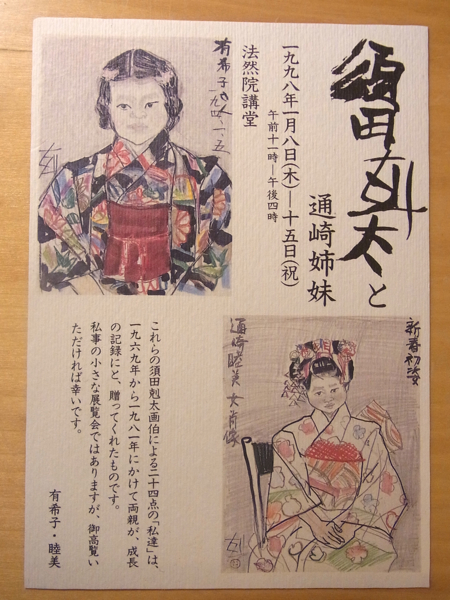 須田剋太と
通崎姉妹
一九九八年一月八日(木)―十五日(祝)
午前十一時―午後四時
法然院講堂
有希子さん
新春初姿
通崎睦美女肖像
これらの須田剋太画伯による二十四点の「私達」は、
一九六九年から一九八一年にかけて両親が、成長
の記録にと、贈ってくれたものです。
私事の小さな展覧会ではありますが、御高覧い
ただければ幸いです。
有希子・睦美